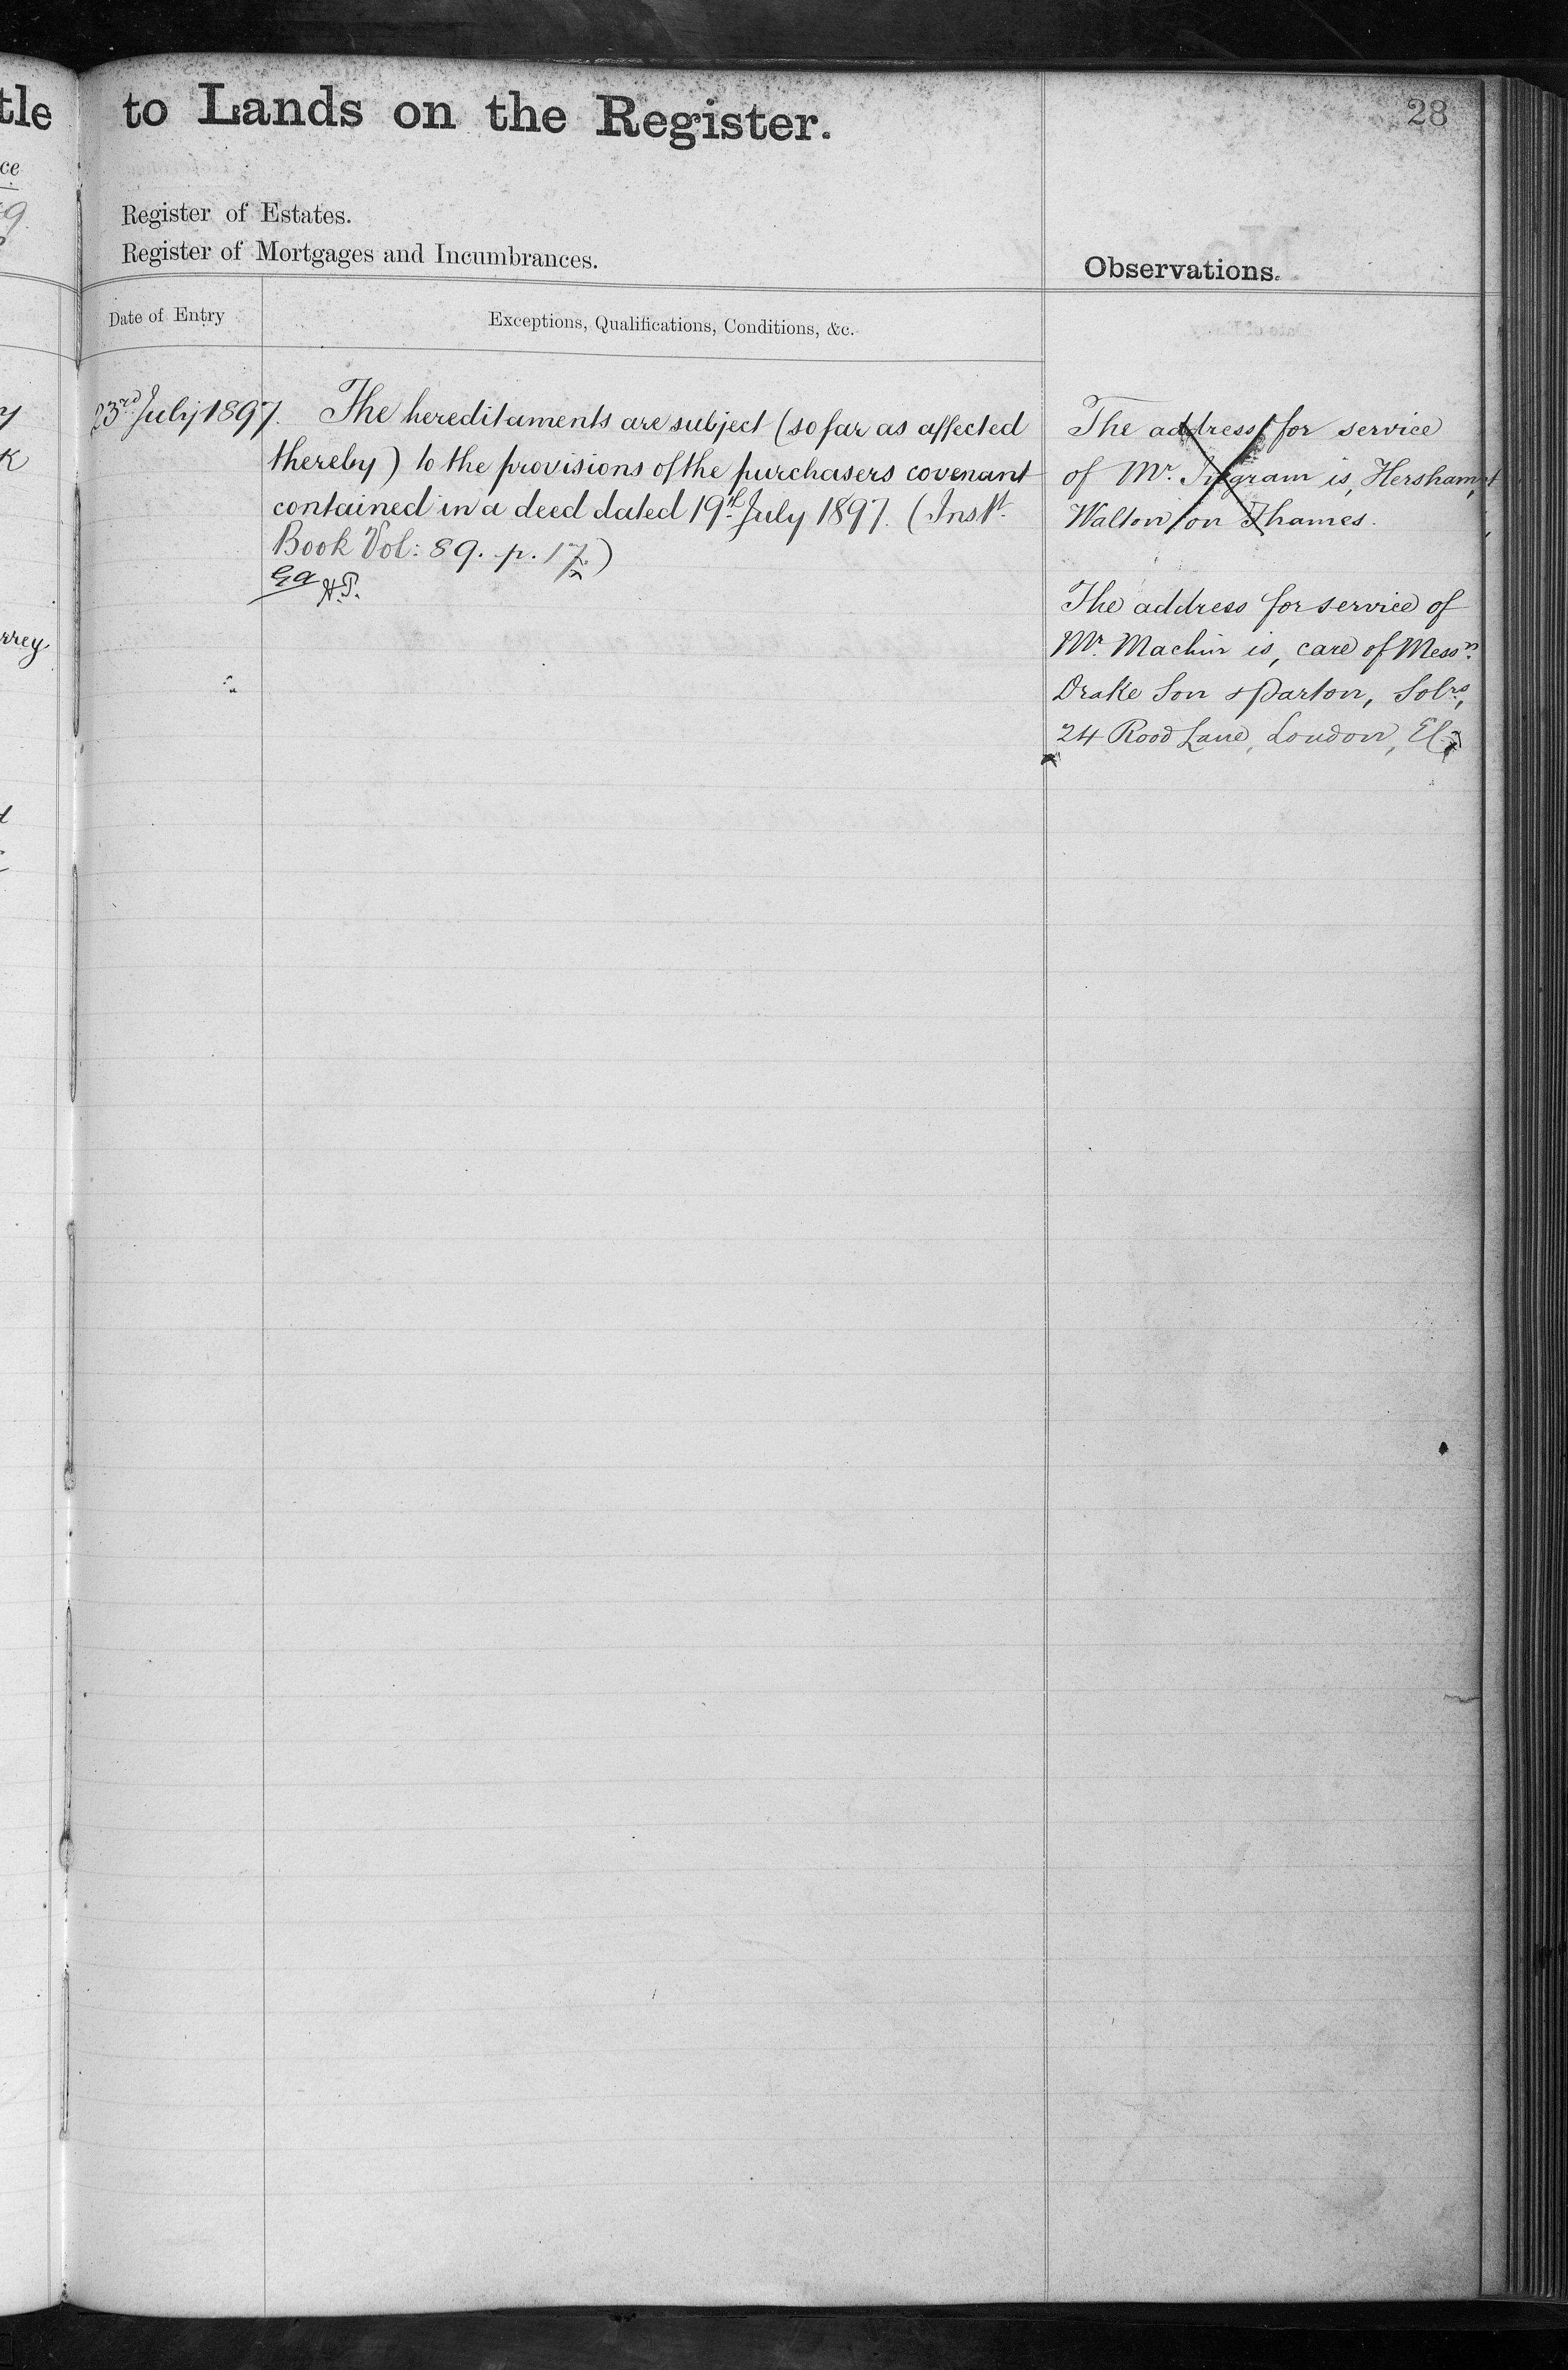 tle to Lands on the Register.
28
ce
Register of Estates.
Register of Mortgages and Incumbrances.
Observations.
Date of Entry
Exceptions, Qualifications, Conditions, &c.
23rd July 1897. The hereditaments are subject (so far as affected
thereby) to the provisions of the purchasers covenant
contained in a deed dated 19th July 1897. (Instt.
Book Vol: 89. p. 17.)
H.P.
The address for service
of Mr. Ingram is, Hersham,
Walton on Thames.
The address for service of
Mr. Machin is, care of Messrs.
Drake Son & Parton, Solrs,
24 Rood Lane, London, EC
rrey